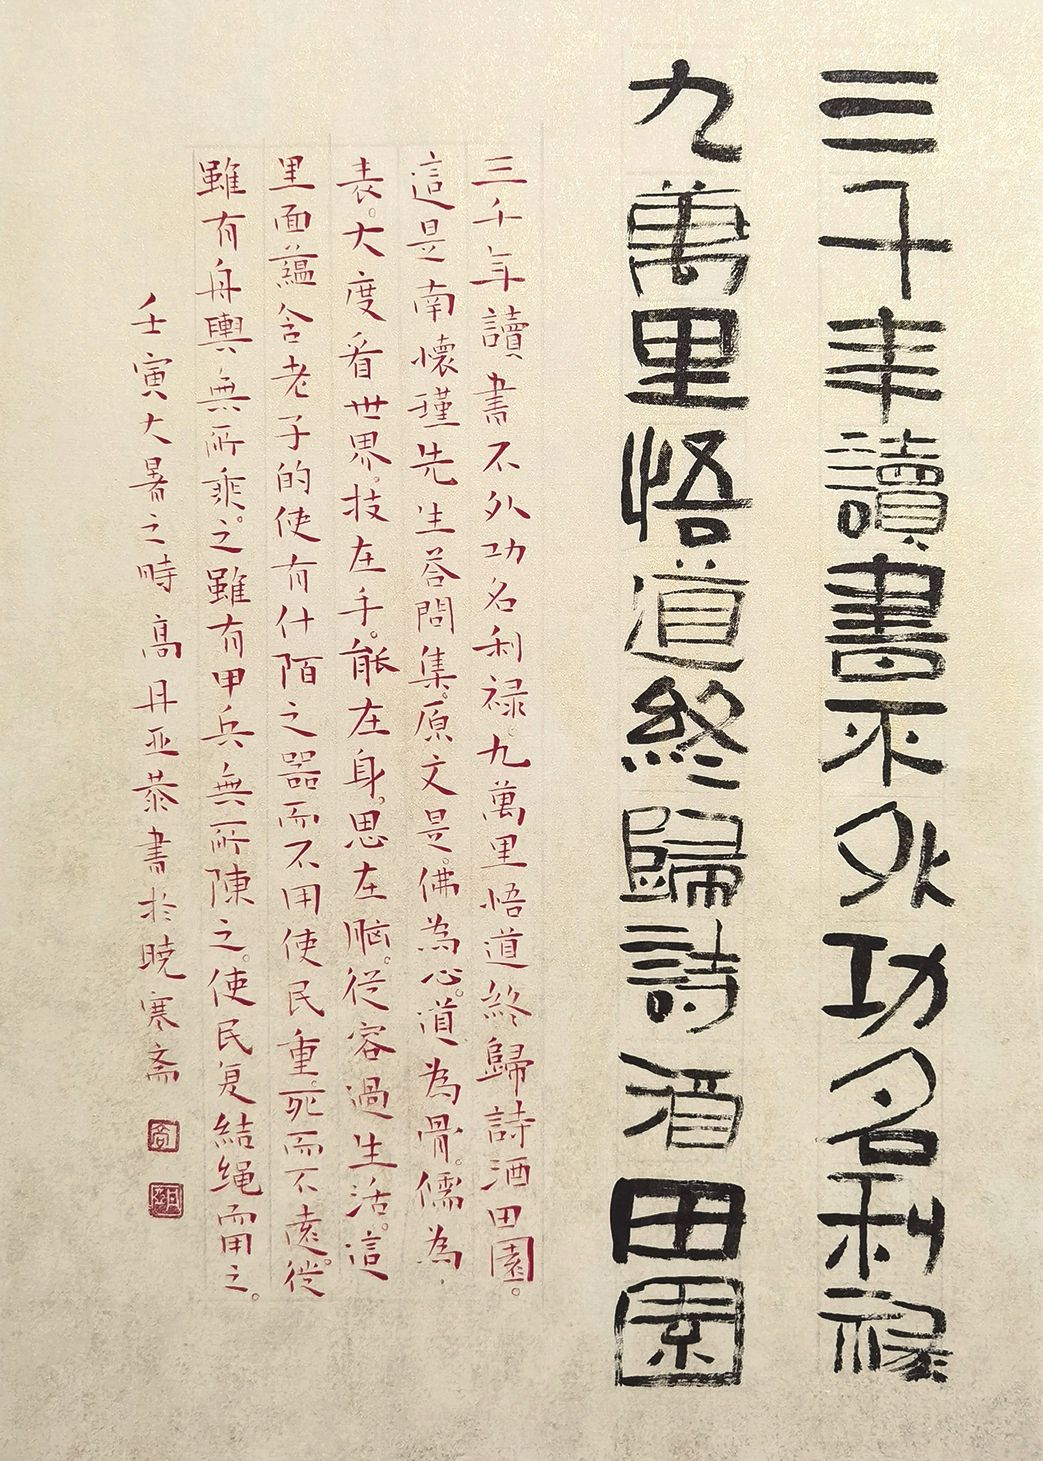 三千年讀書不外功名利禄
九萬里悟道終歸詩酒田園
三千年讀書不外功名利禄。九萬里悟道終歸詩酒田園。
這是南懷瑾先生答問集。原文是。佛為心。道為骨。儒為
表。大度看世界。技在手。能在身。思在脑。從容過生活。這
里面蘊含老子的使有什陌之器而不用使民重死。而不遠。從
雖有舟輿無所乘之。雖有甲兵無所陳之。使民复結绳而用之。
壬寅大暑之時高丹亚恭書於晓寒斋